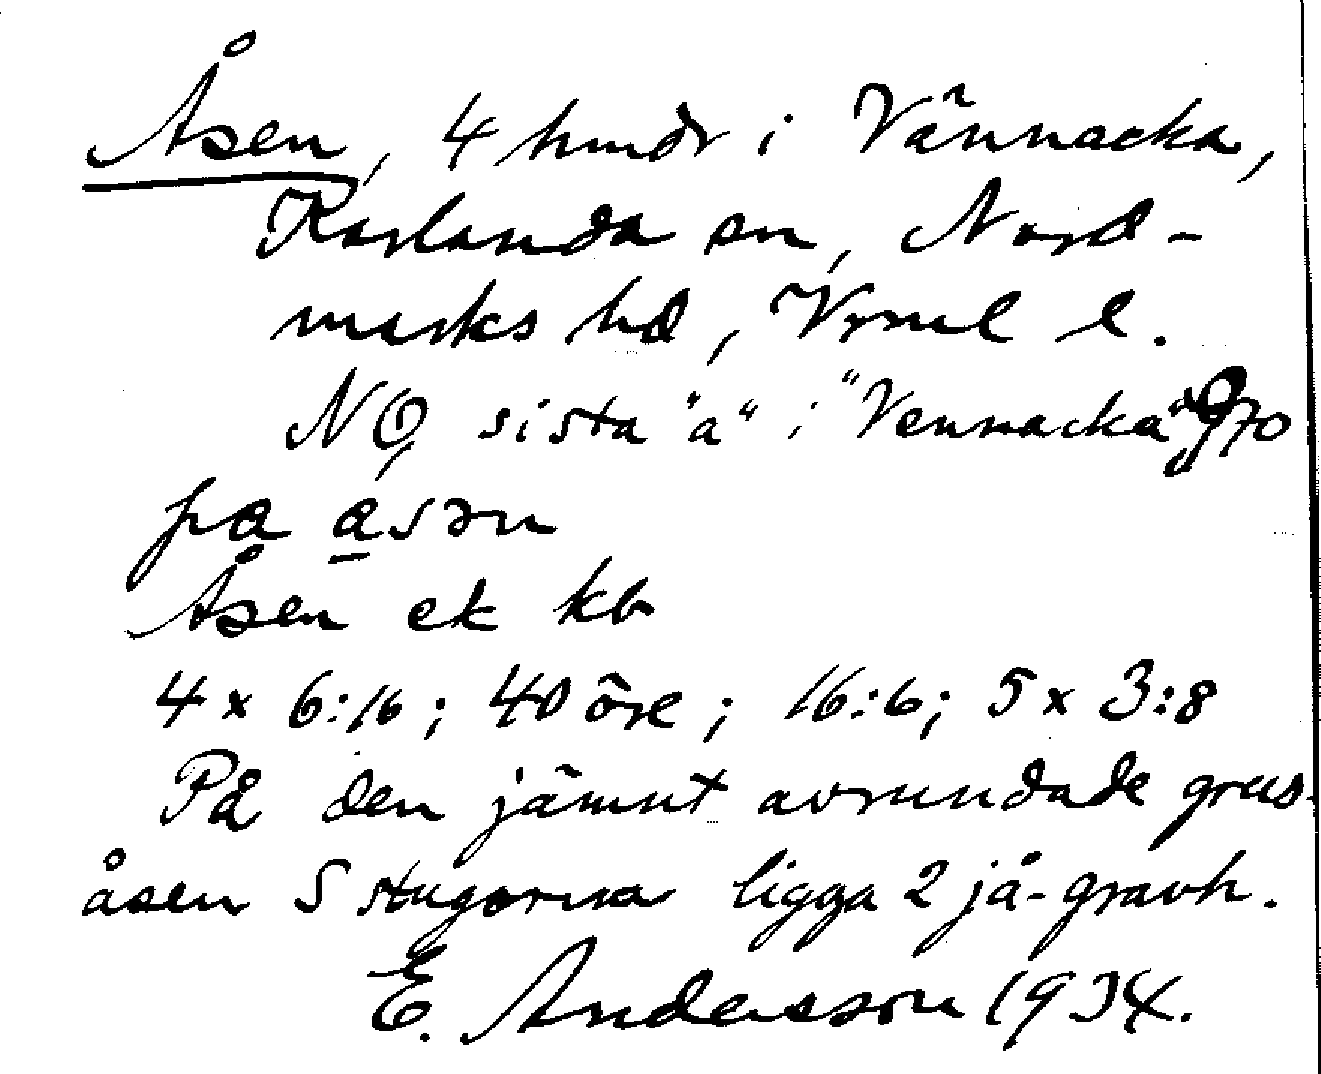 Åsen, 4 hmdr i Vännacka,
Karlanda sn, Nord-
marks hd, Vrml l.
NO, sista "a" i "Vennacka" 970
på åsən
Åsen ek kb
4 x 6:16; 40 öre; 16:6; 5 x 3:8
På den jämnt avrundade grus-
åsen S stugorna ligga 2 jå-gravh.
E. Andersson 1934.